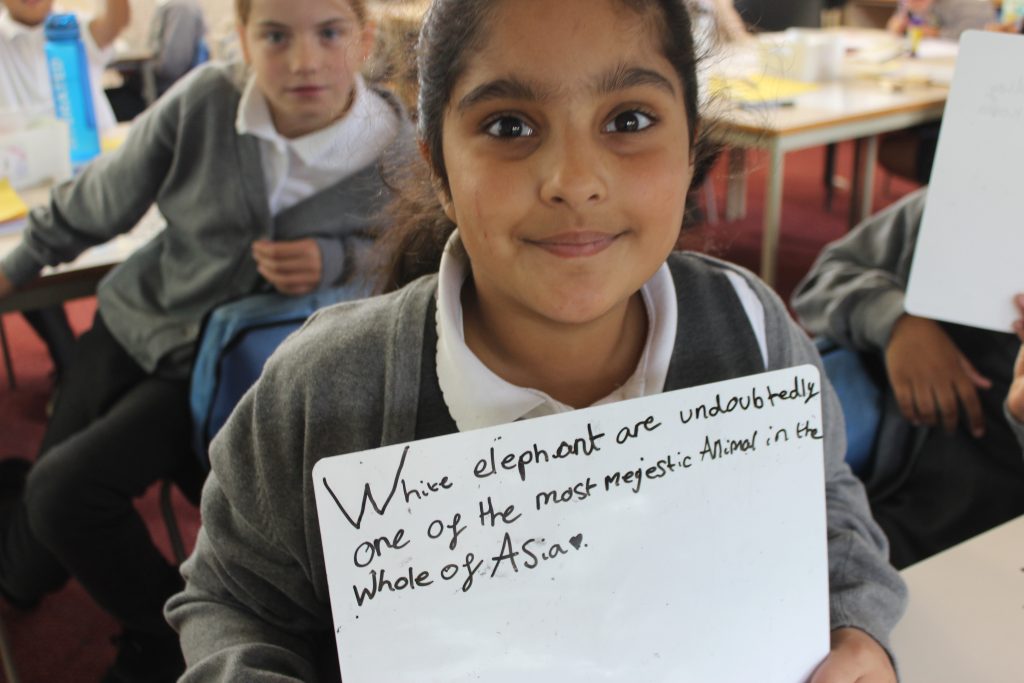 White elephant are undoubtedly
one of the most megestic Animal in the
whole of Asia♥.